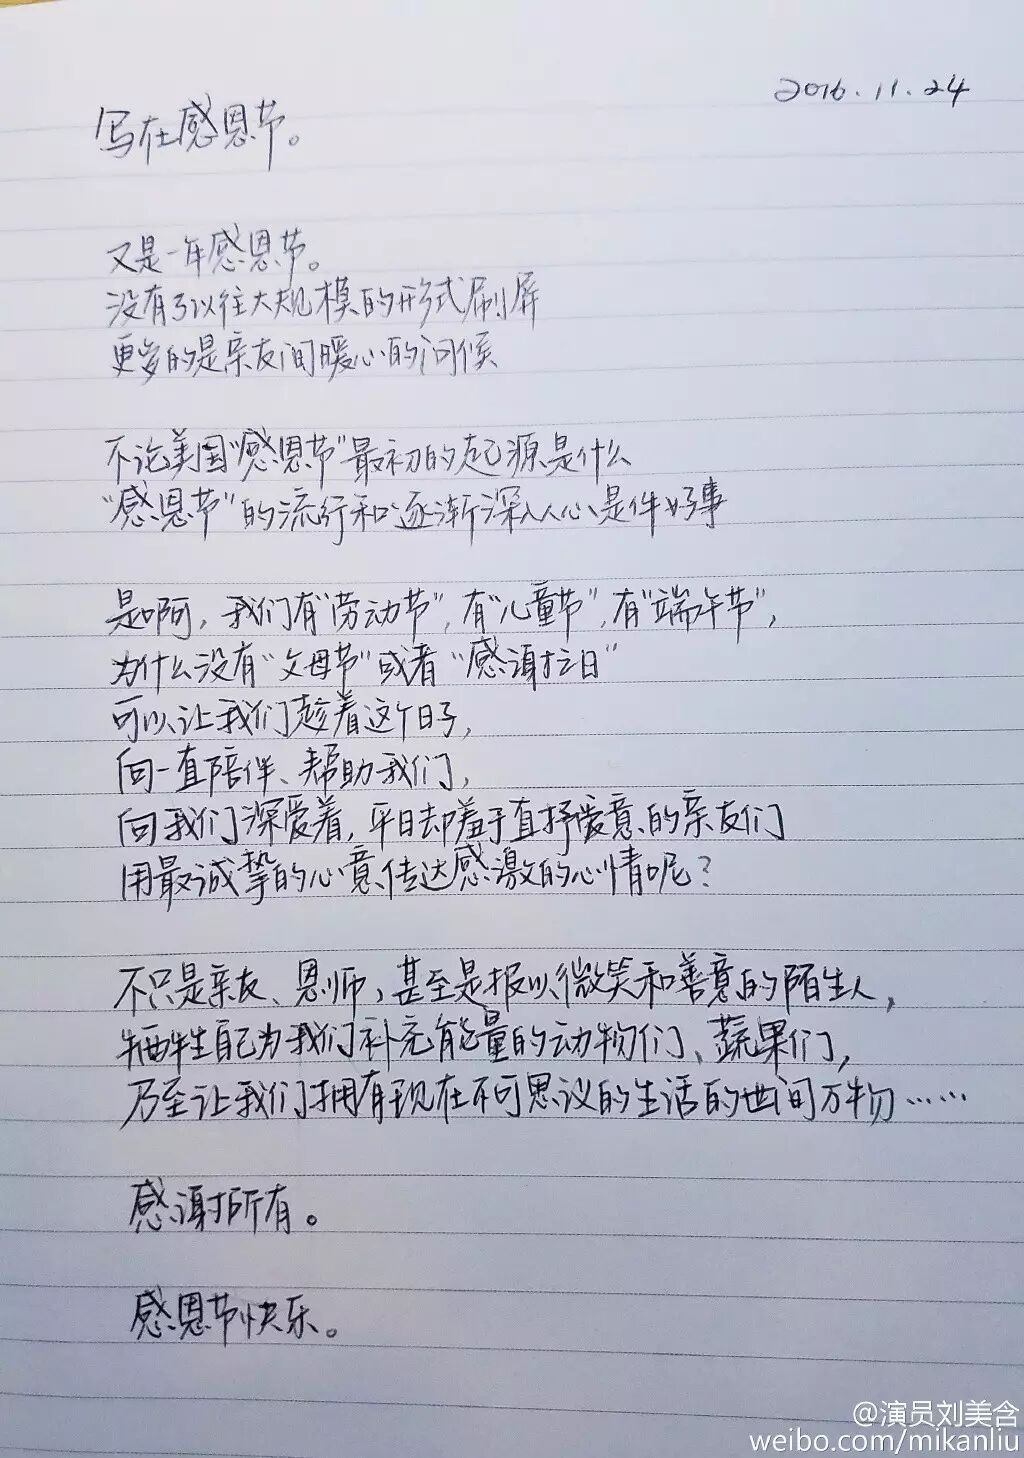 2016.11.24
写在感恩节。
又是一年感恩节。
没有了以往大规模的形式刷屏
更多的是亲友间暖心的问候
不论美国"感恩节"最初的起源是什么
"感恩节"的流行和逐渐深入人心是件好事
是啊,我们有"劳动节",有"儿童节",有"端午节",
为什么没有"父母节"或者"感谢日"
可以让我们趁着这个日子,
向一直陪伴、帮助我们,
向我们深爱着,平日却羞于直抒爱意的亲友们
用最诚挚的心意传达感激的心情呢?
不只是亲友、恩师,甚至是报以微笑和善意的陌生人,
牺牲自己为我们补充能量的动物们、蔬果们,
乃至让我们拥有现在不可思议的生活的世间万物……
感谢所有。
感恩节快乐。
@演员刘美含
weibo.com/mikanliu